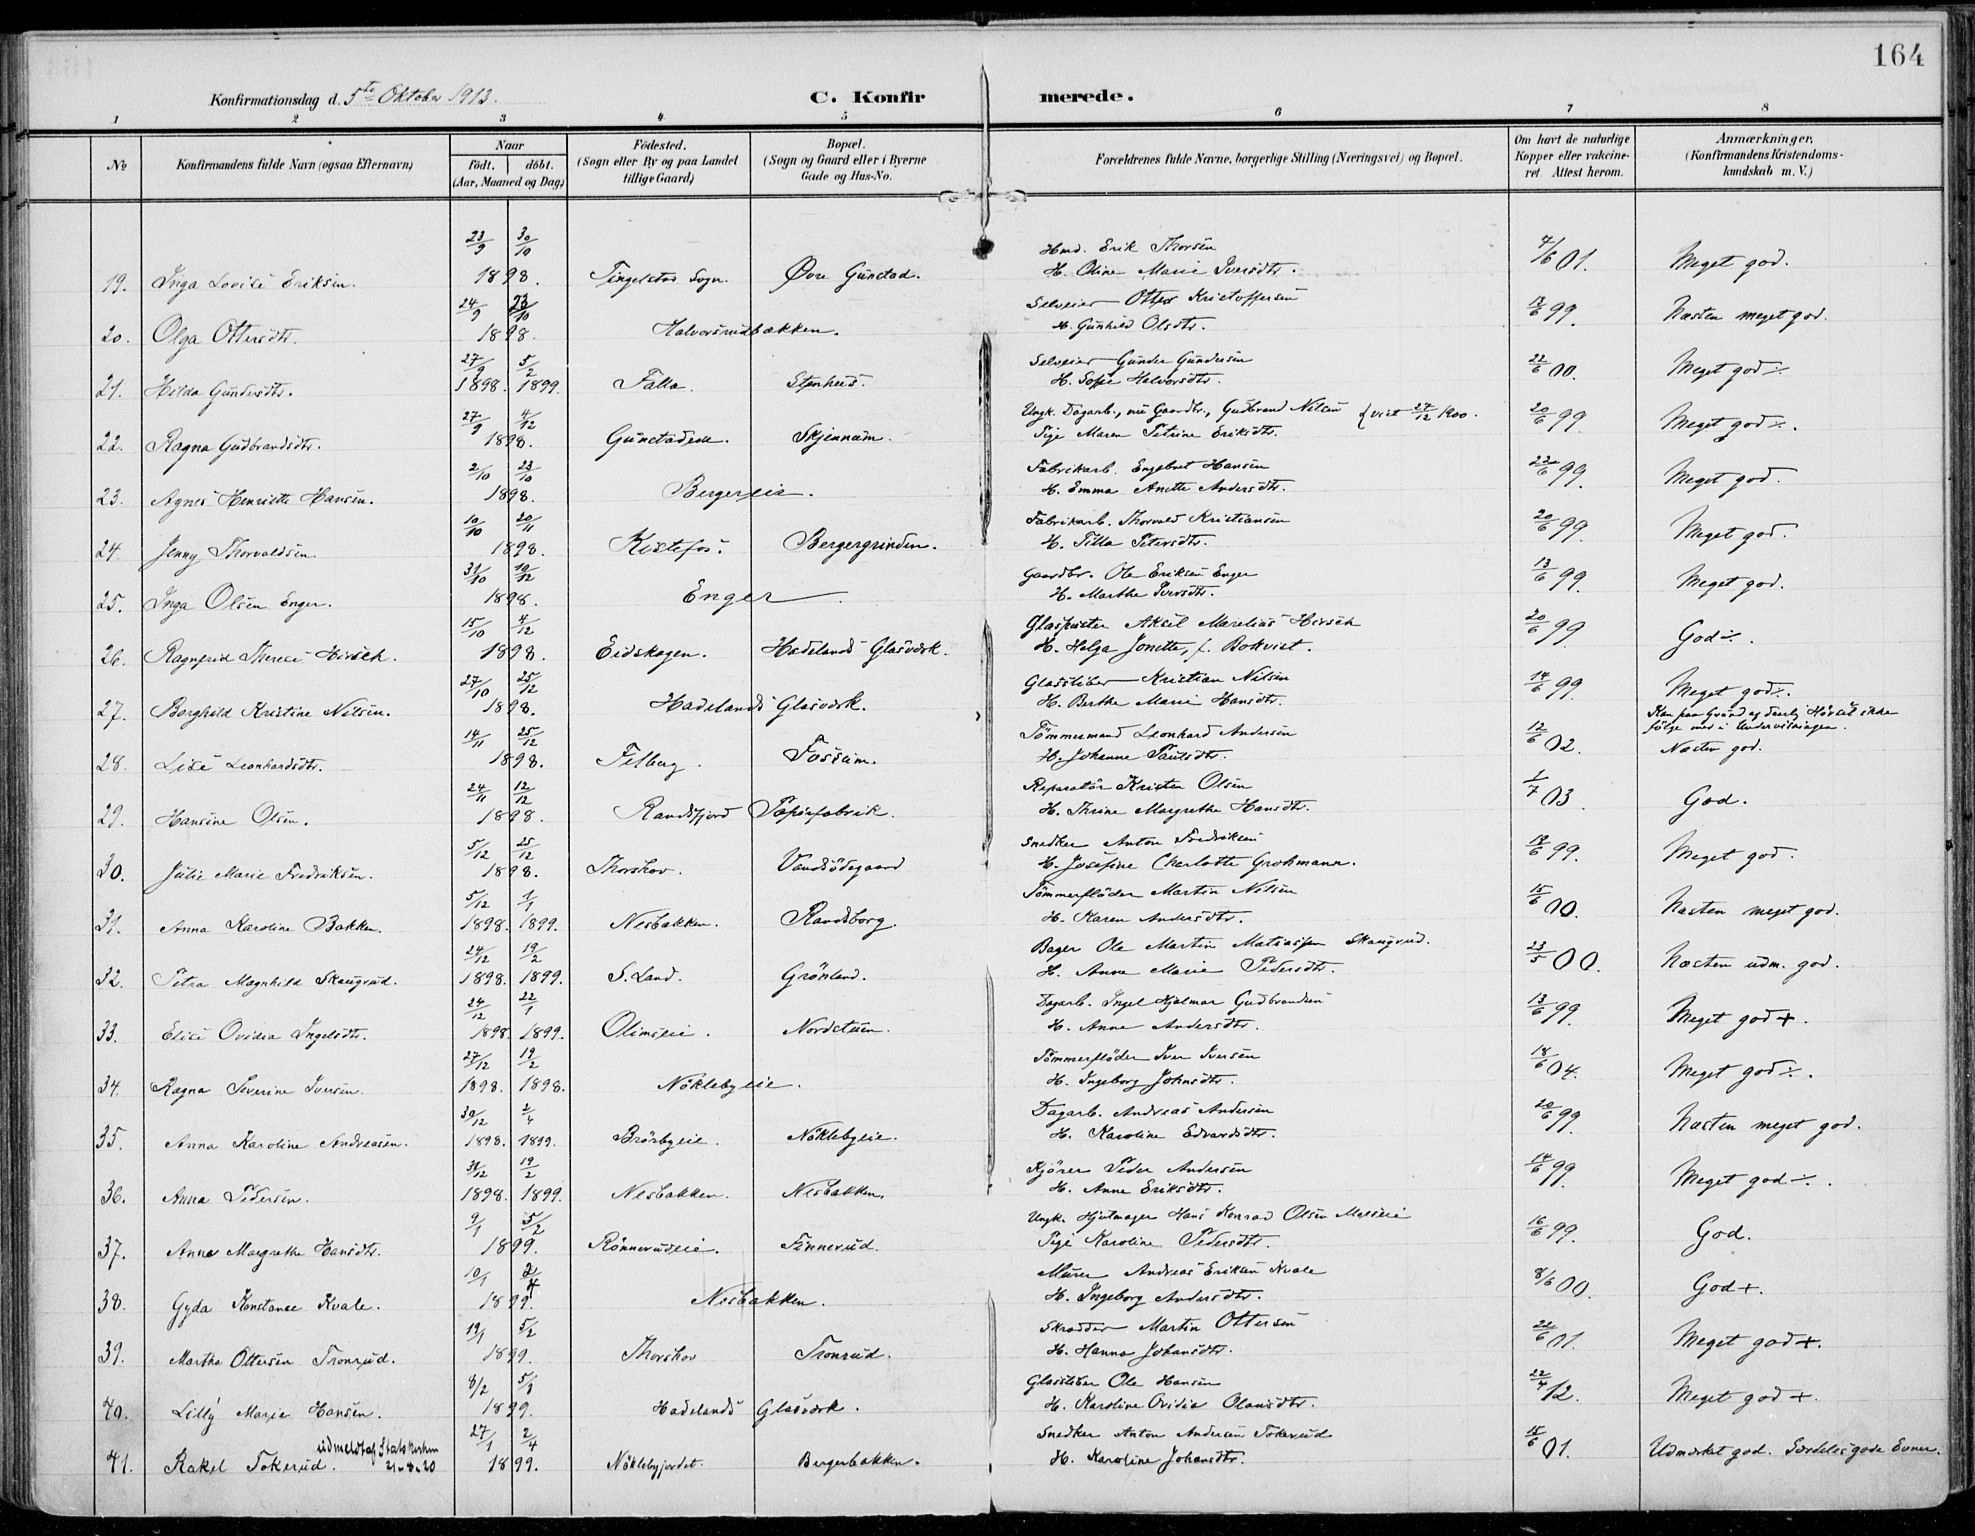 164
Konfirmationsdag d. 5te Oktober 1913.
C. Konfirmerede.
1 2 3 4 5 6 7 8
No
Konfirmandens fulde Navn (ogsaa Efternavn)
Naar
födt. döbt.
(Aar, Maaned og Dag)
Födested.
(Sogn eller By og paa Landet
tillige Gaard)
Bopæl.
(Sogn og Gaard eller i Byerne
Gade og Hus-No.
Forældrenes fulde Navne, borgerlige Stilling (Næringsvei) og Bopæl.
Om havt de naturlige
Kopper eller vakcine-
ret. Attest herom.
Anmærkninger,
(Konfirmandens Kristendoms-
kundskab m. V.)
23/9 30/10 Hmd. Erik Thorsen 4/6 01.
19. Inga Lovise Eriksen. 1898. Tingelstad Sogn. Øvre Gunstad. H. Oline Marie Iversdtr. Meget god.
24/9 23/10 Selveier Otter Kristoffersen 99.
20. Olga Ottersdtr. 1898. Halvorsrudbakken. H. Gunhild Olsdtr. Næsten meget god.
27/9 5/2 Selveier Gunder Gundersen 22/6 00.
21. Hilda Gundersdtr. 1898. 1899. Falla. Stenhus. H. Sofie Halvorsdtr. Meget god ÷
27/9 4/12 Ungk. Dagarb., nu Gaardbr., Gudbrand Nilsen { viet 27/12 1900. 20/6 99.
22. Ragna Gudbrandsdtr. 1898. Gunstadeie. Skjennum. Pige Maren Petrine Eriksdtr. Meget god ÷.
2/10 23/10 Fabrikarb. Engebret Hansen 22/6 99.
23. Agnes Henriette Hansen. 1898. Bergereie. H. Emma Anette Andersdtr. Meget god.
10/10 20/11 Fabrikarb. Thorvald Kristiansen 20/6 99.
24. Jenny Thorvaldsen. 1898. Kistefos. Bergergrinden. H. Tilla Petersdtr. Meget god.
31/10 10/12 Gaardbr. Ole Eriksen Enger 13/6 99.
25. Inga Olsen Enger. 1898. Enger H. Marthe Iversdtr. Meget god.
15/10 4/12 Glaspuster Aksel Marelius Hirsch 20/6 99.
26. Ragnfrid Therese Hirsch. 1898. Eidskogen. Hadelands Glasværk. H. Helga Jonette, f. Bokvist. God ÷.
27/10 25/12 Glassliber Kristian Nilsen 14/6 99.
27. Borghild Kristine Nilsen. 1898. Hadelands Glasværk. H. Berthe Marie Hansdtr. Meget god ÷.
14/11 25/12 Tømmermand Leonhard Andersen 12/6 02. Kan paa Grund af daarlig Hørsel ikke
følge med i Undervisningen.
28. Lise Leonhardsdtr. 1898. Felberg. Fossum. H. Johanne Paulsdtr. Næsten god.
24/11 12/12 Reparatör Kristen Olsen 1/7 03.
29. Hansine Olsen. 1898. Randsfjord Papirfabrik. H. Thrine Margrethe Hansdtr. God.
5/12 25/12 Snedker Anton Fredriksen 99.
30. Julie Marie Fredriksen. 1898. Thorshov. Vandsödegaard H. Josefine Charlotte Grohmann. Meget god.
5/12 1/1 Tömmerflöder Martin Nilsen 15/6 00.
31. Anna Karoline Bakken. 1898. 1899. Nesbakken. Randsborg. H. Karen Andersdtr. Næsten meget god.
24/12 19/2 Bager Ole Martin Matiassen Skaugrud. 23/5 00.
32. Petra Magnhild Skaugrud. 1898. 1899. S. Land. Grönland. H. Anne Marie Pedersdtr. Næsten udm. god.
24/12 22/1 Dagarb. Ingel Hjalmar Gudbrandsen 13/6 99.
33. Elise Ovidia Ingelsdtr. 1898. 1899. Olimseie. Nordstuen. H. Anne Andersdtr. Meget god +.
27/12 19/2 Tömmerflöder Iver Iversen 18/6 04.
34. Ragna Severine Iversen. 1898. 1898. Nöklebyeie. H. Ingeborg Johnsdtr. Meget god ÷.
30/12 2/4 Dagarb. Andreas Andersen 20/6 99.
35. Anna Karoline Andreasen. 1898. 1899. Brörbyeie. Nöklebyeie. H. Karoline Edvardsdtr. Næsten meget god.
31/12 19/2 Kjörer Peder Andersen 14/6 99.
36. Anna Pedersen. 1898. 1899. Nesbakken. Nesbakken. H. Anne Eriksdtr. Meget god ÷.
9/1 5/2 Ungk. Hjulmager Hans Konrad Olsen 16/6 99.
37. Anne Margrethe Hansdtr. 1899. Rönnerudeie. Finnerud. Pige Karoline Pedersdtr. God.
10/1 2/4 Murer Andreas Eriksen Kvale 8/6 00.
38. Gyda Konstanse Kvale. 1899. Nesbakken. H. Ingeborg Andersdtr. God +.
19/1 5/2 Skrædder Martin Ottersen 22/6 01.
39. Martha Ottersen Tronrud. 1899. Thorshov Tronrud. H. Hanna Johansdtr. Meget god +.
8/2 5/3 Glassliber Ole Hansen 22/4 12.
40. Lilly Marie Hansen. 1899. Hadelands Glasværk. H. Karoline Ovidia Olausdtr. Meget god +.
udmeldt af Statskirken 27/1 2/4 Snedker Anton Andersen Tokerud 01.
41. Rakel Tokerud. 21-8-20 1899. Nöklebyjordet. Bergerbakken. H. Karoline Johansdtr. Udmærket god. Særdeles gode Evner.